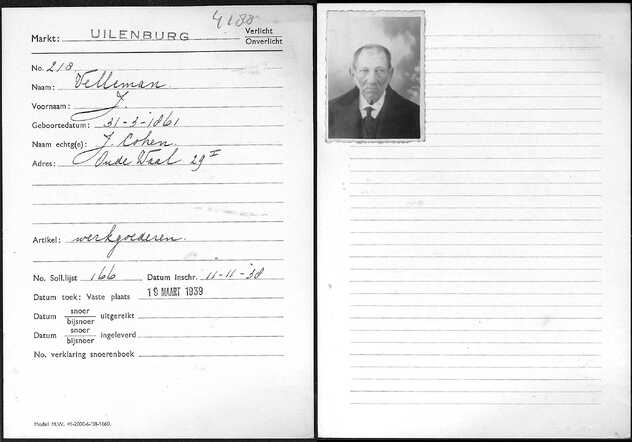 4188
Markt: UILENBURG Verlicht
Onverlicht
No. 218
Naam: Velleman
Voornaam: J.
Geboortedatum: 31-3-1861
Naam echtg(e): J. Cohen.
Adres: Oude Waal 29 II
Artikel: werkgoederen.
No. Soll.lijst 166 Datum Inschr. 11-11-38
Datum toek: Vaste plaats 19 MAART 1939
Datum snoer
bijsnoer uitgereikt
Datum snoer
bijsnoer ingeleverd
No. verklaring snoerenboek
Model M.W.